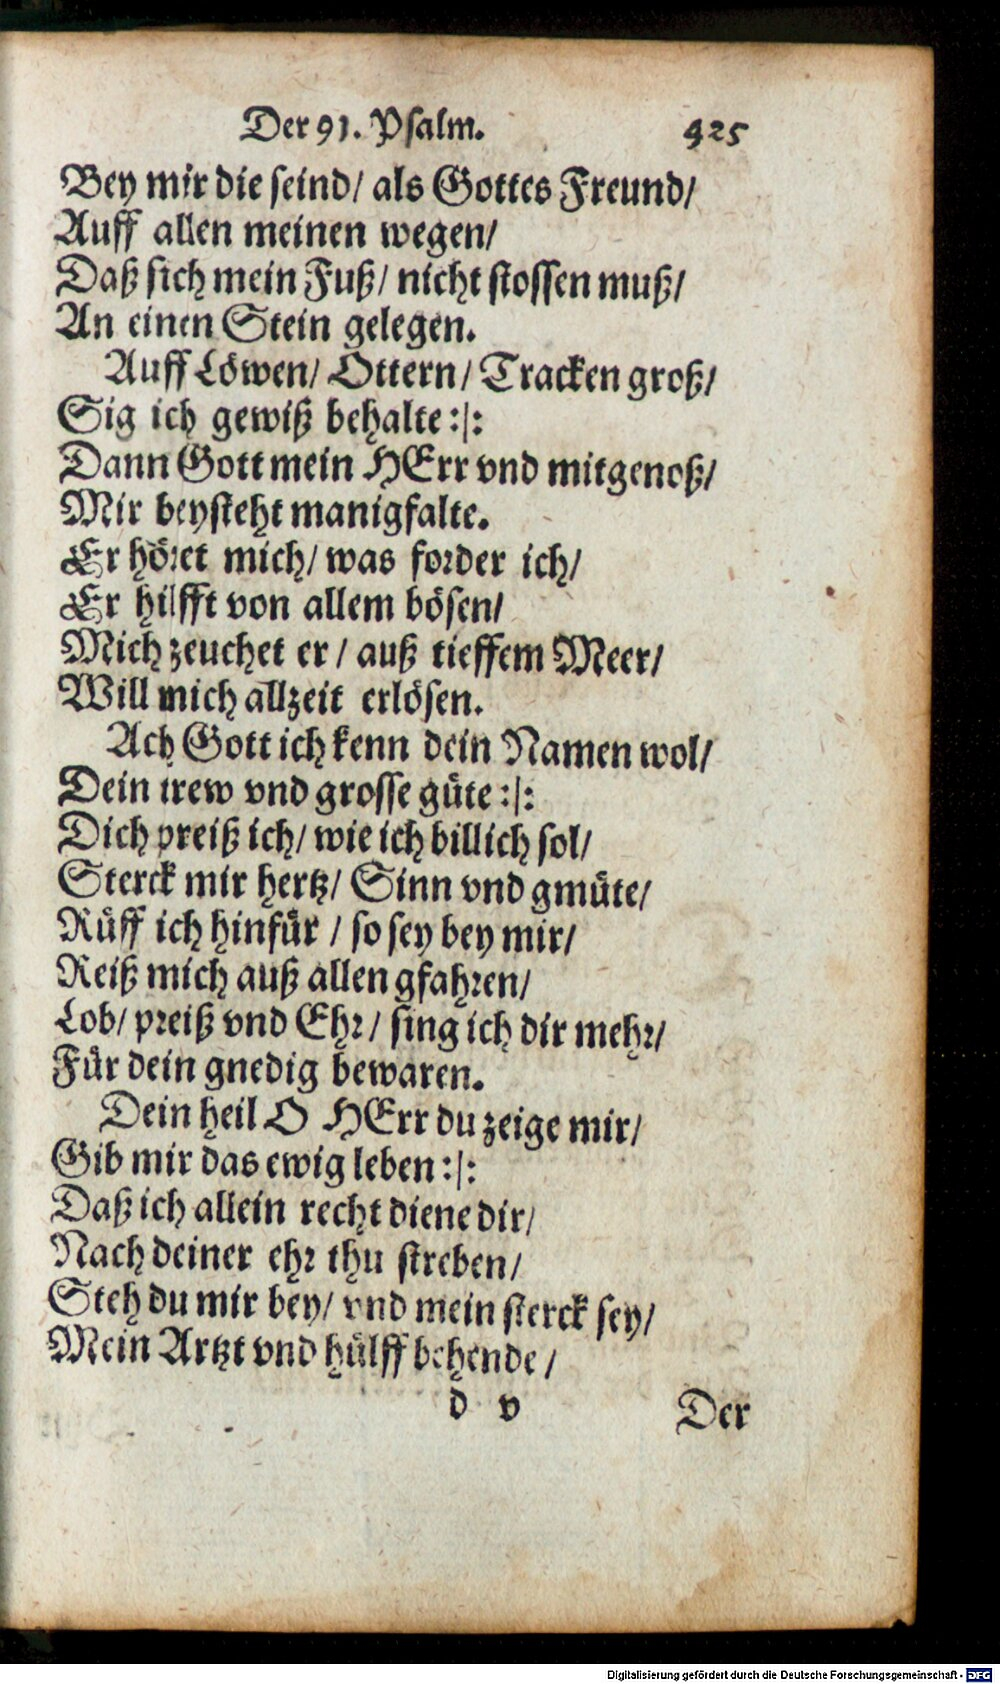 Der 91. Psalm. 425
Bey mir die seind/ als Gottes Freund/
Auff allen meinen wegen/
Daß sich mein Fuß/ nicht stossen muß/
An einen Stein gelegen.
Auff Löwen/ Ottern/ Tracken groß/
Sig ich gewiß behalte :|:
Dann Gott mein HErr vnd mitgenoß/
Mir beysteht manigfalte.
Er höret mich/ was forder ich/
Er hilfft von allem bösen/
Mich zeuchet er/ auß tieffem Meer/
Will mich allzeit erlösen.
Ach Gott ich kenn dein Namen wol/
Dein trew vnd grosse güte :|:
Dich preiß ich/ wie ich billich sol/
Sterck mir hertz/ Sinn vnd gmüte/
Rüff ich hinfür / so sey bey mir/
Reiß mich auß allen gfahren/
Lob/ preiß vnd Ehr/ sing ich dir mehr/
Für dein gnedig bewaren.
Dein heil O HErr du zeige mir/
Gib mir das ewig leben :|:
Daß ich allein recht diene dir/
Nach deiner ehr thu streben/
Steh du mir bey/ vnd mein sterck sey/
Mein Artzt vnd hülff behende /
d v Der
Digitalisierung gefördert durch die Deutsche Forschungsgemeinschaft - DFG